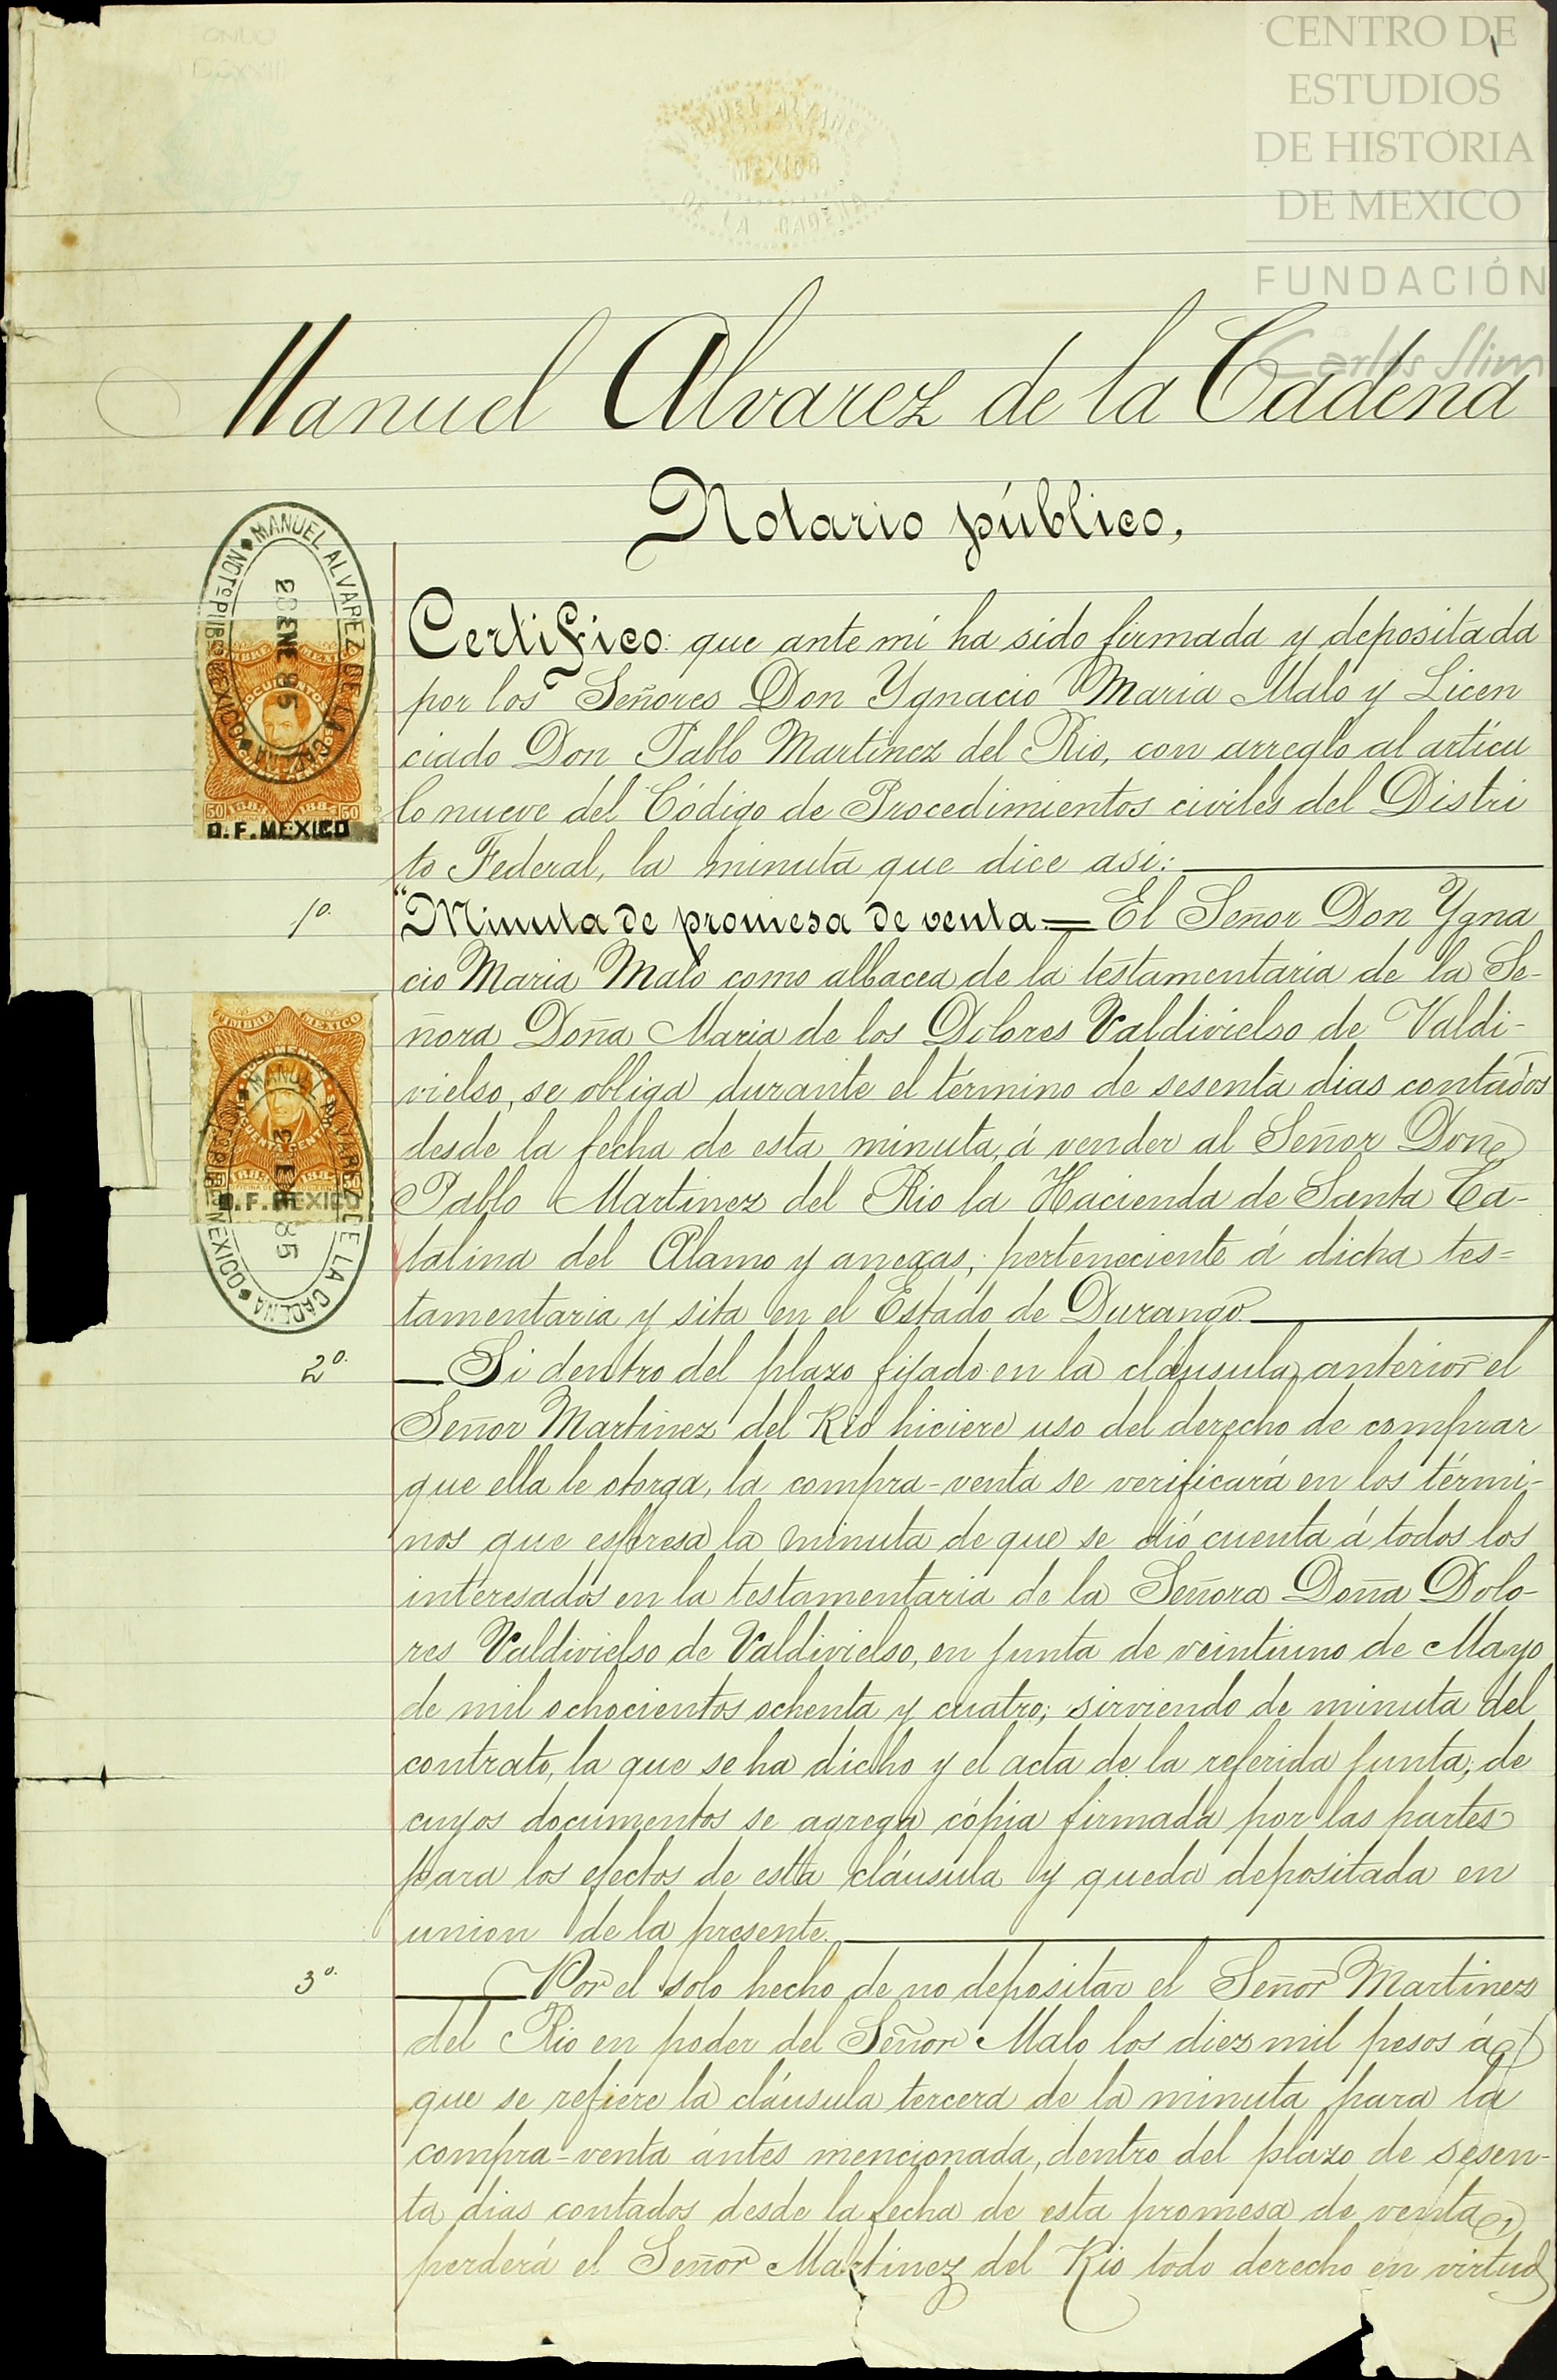 CENTRO DE
ESTUDIOS
DE HISTORIA
DE MEXICO
FUNDACIÓN
Carlos Slim
MANUEL ALVAREZ
MEXICO
DE LA CADENA
Manuel Alvarez de la Cadena
Notario público,
MANUEL ALVAREZ DE LA CADENA NOT.º PUB.º MEXICO
ENE 85
DOCUMENTOS
50 1884 1885 50
D.F. MEXICO
Certifico: que ante mí ha sido firmada y depositada
por los Señores Don Ygnacio Maria Malo y Licen
ciado Don Pablo Martinez del Rio, con arreglo al artícu
lo nueve del Código de Procedimientos civiles del Distri
to Federal, la minuta que dice asi:
1º. "Minuta de promesa de venta.= El Señor Don Ygna
cio Maria Malo como albacea de la testamentaria de la Se-
ñora Doña Maria de los Dolores Valdivielso de Valdi-
vielso, se obliga durante el término de sesenta dias contados
desde la fecha de esta minuta, á vender al Señor Don
Pablo Martinez del Rio la Hacienda de Santa Ca-
talina del Alamo y anexas, perteneciente á dicha tes=
tamentaria y sita en el Estado de Durango.
TIMBRE MEXICO
MANUEL ALVAREZ DE LA CADENA MEXICO
D.F. MEXICO
85
2º. Si dentro del plazo fijado en la cláusula anterior el
Señor Martinez del Rio hiciere uso del derecho de comprar
que ella le otorga, la compra-venta se verificará en los térmi-
nos que espresa la minuta de que se dió cuenta á todos los
interesados en la testamentaria de la Señora Doña Dolo-
res Valdivielso de Valdivielso, en junta de veintiuno de Mayo
de mil ochocientos ochenta y cuatro; sirviendo de minuta del
contrato, la que se ha dicho y el acta de la referida junta; de
cuyos documentos se agrega cópia firmada por las partes
para los efectos de esta cláusula y queda depositada en
union de la presente.
3º. Por el solo hecho de no depositar el Señor Martinez
del Rio en poder del Señor Malo los diez mil pesos á
que se refiere la cláusula tercera de la minuta para la
compra-venta ántes mencionada, dentro del plazo de sesen-
ta dias contados desde la fecha de esta promesa de venta,
perderá el Señor Martinez del Rio todo derecho en virtud